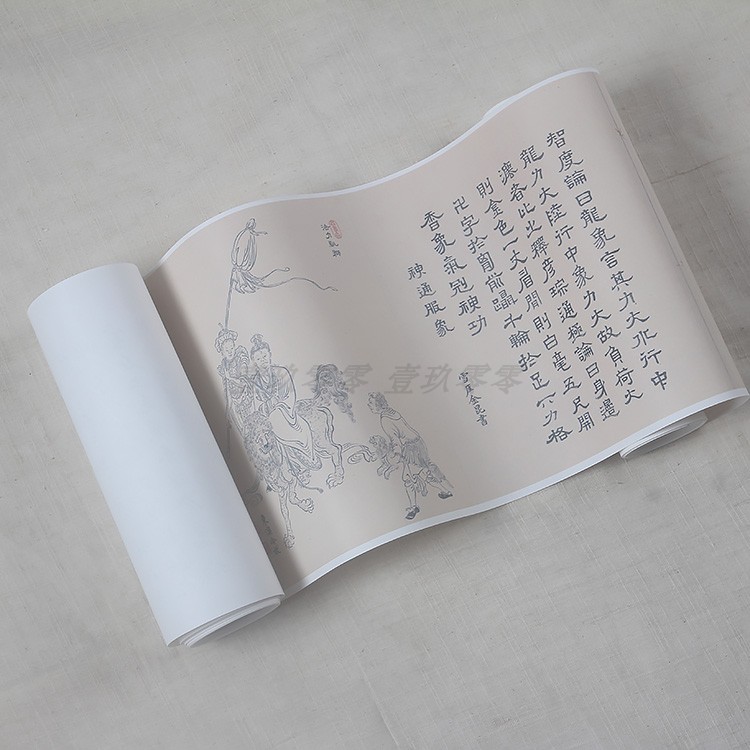 智度論曰龍象言其力大水行中
龍力大陸行中象力大故負荷大
灋者比之釋彥琮通極論曰身邊
則金色一丈眉間則白毫五尺開
卍字扵胷前躡千輪扵足下力格
香象氣冠神功
神通服象
壹玖零零 壹玖零零